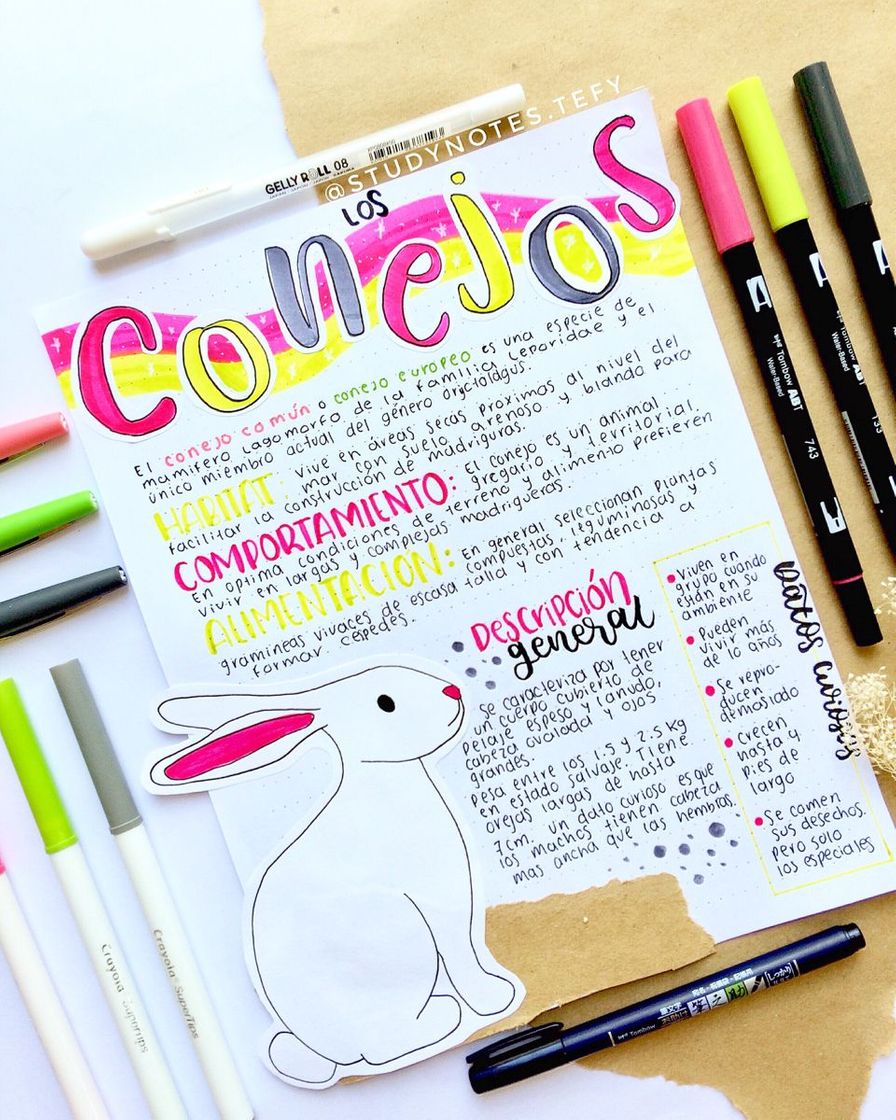 GELLY ROLL 08
@STUDYNOTES.TEFY
LOS
CONEJOS
El conejo común o conejo europeo es una especie de
mamifero Lagomorfa de la familia Leporidae y el
único miembro actual del género Orijctolagus.
HABITAT: Vive en áreas secas próximas al nivel del
mar con suelo arenoso y blando para
facilitar la construcción de madrigueras.
COMPORTAMIENTO: El conejo es un animal
gregario y territorial.
En optima condiciones de terreno y alimento prefieren
vivir en largas y complejas madrigueras.
ALIMENTACIÓN: En general seleccionan plantas
compuestas, leguminosas y
gramineas vivaces de escasa talla y con tendencia a
formar céspedes.
Descripción
general
Se caracteriza por tener
un cuerpo cubierto de
pelaje espeso y lanudo,
cabeza ovalada y ojos
grandes.
pesa entre los 1.5 y 2.5 kg
en estado salvaje. Tiene
orejas largas de hasta
7cm. un dato curioso es que
los machos tienen cabeza
mas ancha que las hembras.
Datos curiosos
Viven en
grupo cuando
están en su
ambiente
Pueden
vivir más
de 10 años
Se repro-
ducen
demosiado
crecen
hasta 4
pies de
largo
Se comen
sus desechos.
pero solo
los especiales
Tombow ABT
Water-Based
743
Tombow ABT
Water-Based
133
Tombow
Crayola SuperTips
Crayola SuperTips
Tombow